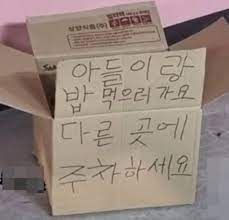 삼양식품(주)
아들이랑
밥 먹으러 가요
다른 곳에
주차하세요